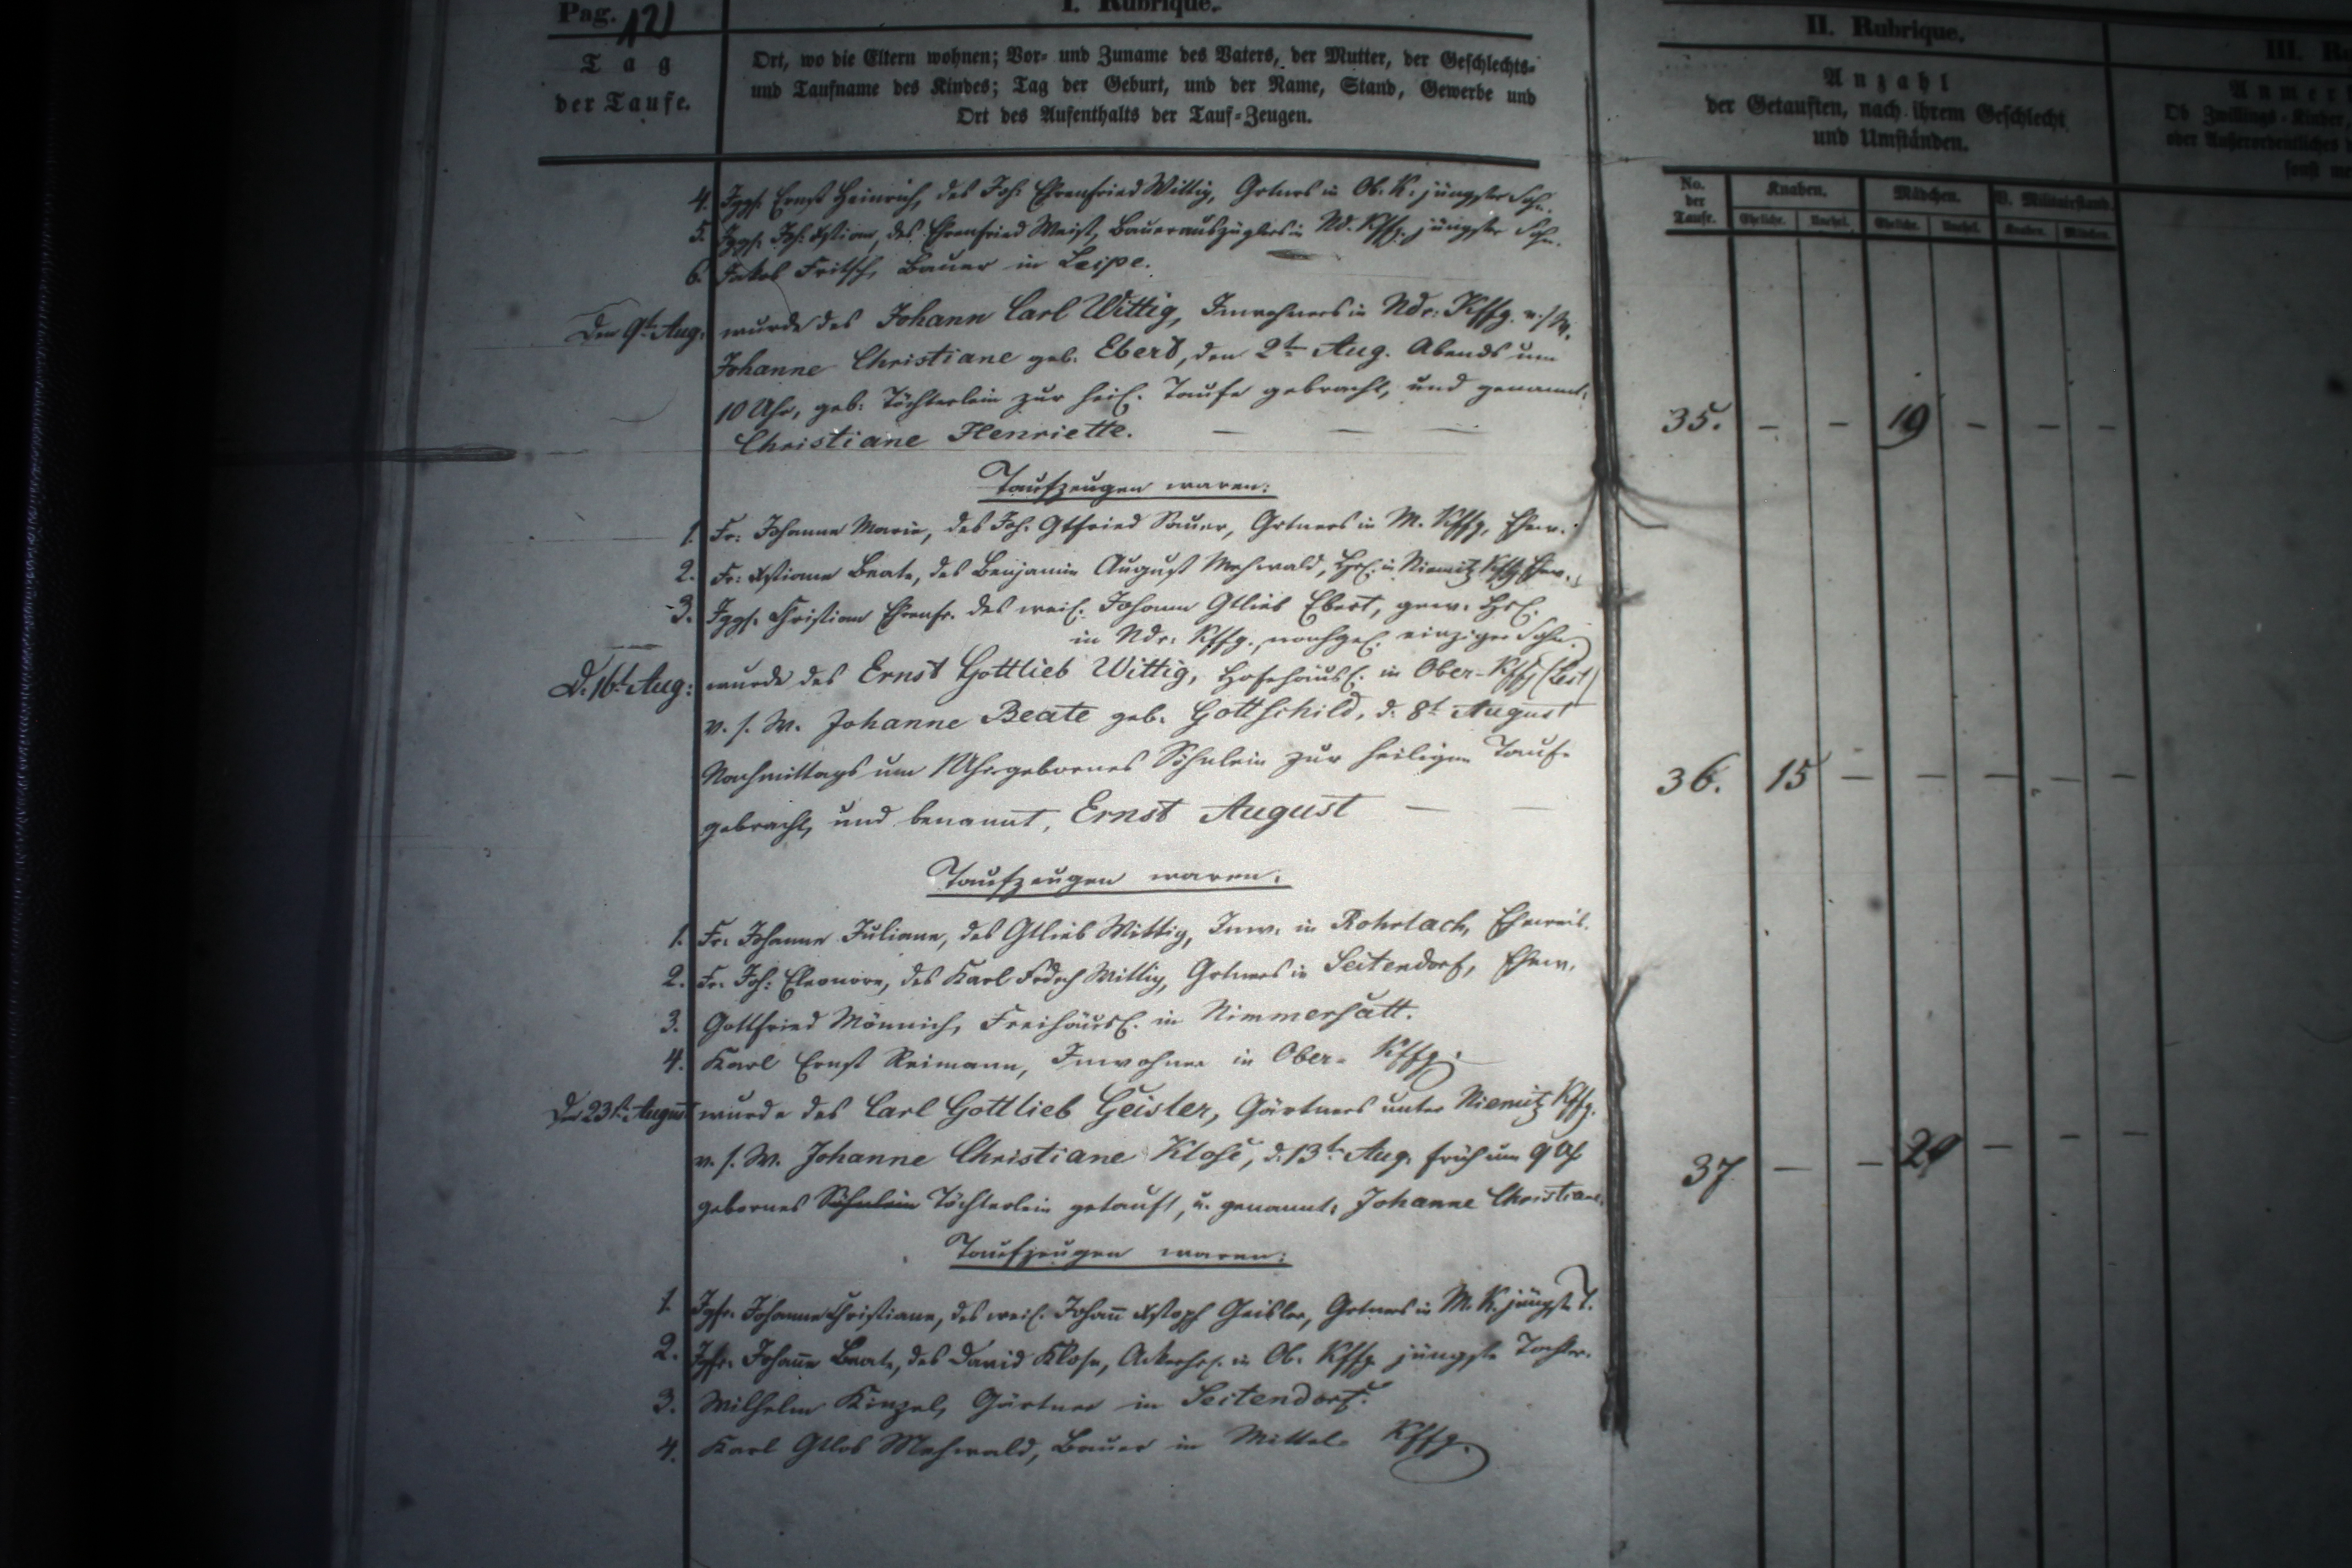 Pag. 121
I. Rubrique.
Tag
der Taufe.
Ort, wo die Eltern wohnen; Vor- und Zuname des Vaters, der Mutter, der Geschlechts-
und Taufname des Kindes; Tag der Geburt, und der Name, Stand, Gewerbe und
Ort des Aufenthalts der Tauf-Zeugen.
II. Rubrique.
Anzahl
der Getauften, nach ihrem Geschlecht
und Umständen.
III.
Ob Zwillings-Kinder
oder Außerordentliches
sonst
No.
der
Taufe.
Knaben.
Mädchen.
V. Militairstand.
Eheliche.
Unehel.
Eheliche.
Unehel.
Knaben.
Mädchen.
4. Jggs. Ernst Heinrich, des Joh. Ehrenfried Wittig, Grtners in Ob. K. jüngster Sohn.
5. Jggs. Joh. Xstian, des Ehrenfried Weist, Bauerauszüglers in Nd. Kffg. jüngster Sohn.
6. Jakob Fritsch, Bauer in Leipe.
Den 9t. Aug. wurde des Johann Carl Wittig, Inwohners in Ndr. Kffg. v. s. W.
Johanne Christiane geb. Ebert, den 2t. Aug. Abends um
10 Uhr, geb. Töchterlein zur heil. Taufe gebracht, und genannt:
Christiane Henriette. — — —
35. — — 19 — — —
Taufzeugen waren:
1. Fr. Johanne Marie, des Joh. Gtfried Sauer, Grtners in M. Kffg. Ehew.
2. Fr. Xstiane Beate, des Benjamin August Mehwald, Hsl. in Niemitz Kffg. Ehew.
3. Jggs. Christian Ehrenfr. des weil. Johann Gtlieb Ebert, gew. Hsl.
in Ndr. Kffg., nachgel. einziger Sohn.
D. 16t. Aug: wurde des Ernst Gottlieb Wittig, Hofehäusl. in Ober-Kffg
v. s. W. Johanne Beate geb. Gottschild, d. 8t. August
Nachmittags um 1 Uhr gebornes Söhnlein zur heiligen Taufe
gebracht, und benannt, Ernst August — —
36. 15 — — — — —
Taufzeugen waren:
1. Fr. Johanne Juliane, des Gtlieb Wittig, Inw. in Rohrlach, Eheweib.
2. Fr. Joh: Eleonore, des Karl Frdrch Wittig, Grtners in Seitendorf, Ehew.
3. Gottfried Männich, Freihäusl. in Nimmersatt.
4. Karl Ernst Reimann, Inwohner in Ober- Kffg.
Den 23t. August wurde des Carl Gottlieb Geisler, Gärtners unter Niemitz Kffg.
v. s. W. Johanne Christiane Klose, d. 13t. Aug. früh um 9 Uh
gebornes Söhnlein Töchterlein getauft, u. genannt: Johanne Christiane.
37 — — 20 — — —
Taufzeugen waren:
1. Jgfr. Johanne Christiane, des weil. Johann Xstoph Geisler, Grtners in M. K. jüngste T.
2. Jgfr. Johanne Beate, des David Klose, Ackerhsl. in Ob. Kffg. jüngste Tochter.
3. Wilhelm Kinzel, Gärtner in Seitendorf.
4. Karl Gtlob Mehwald, Bauer in Mittel- Kffg.